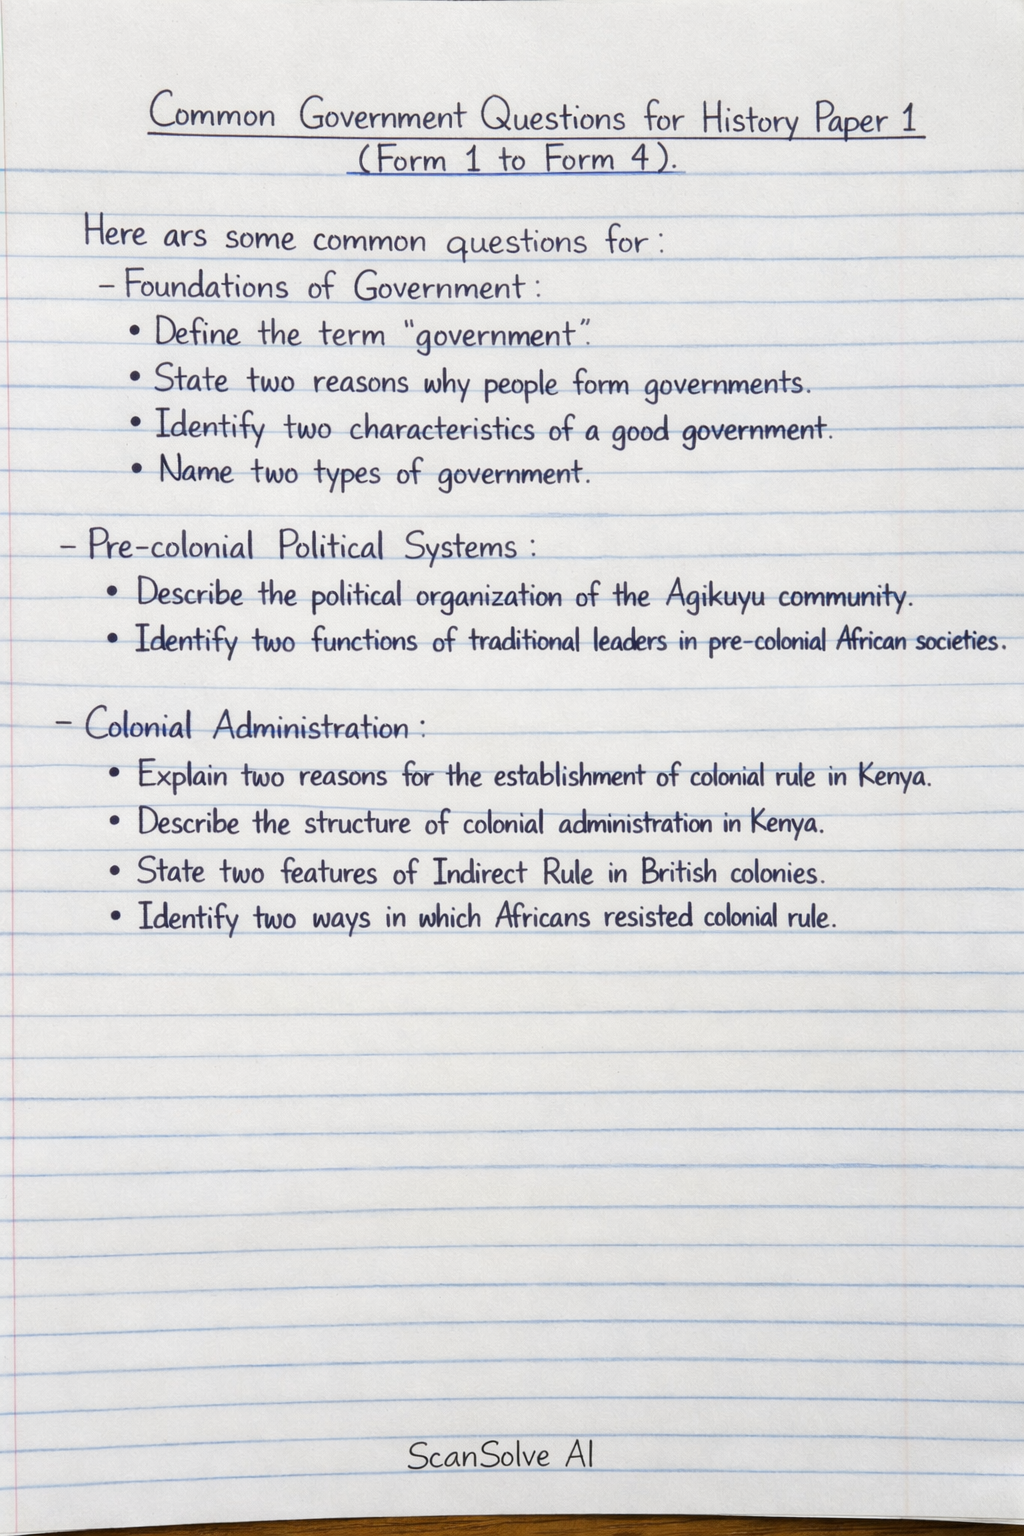 Common Government Questions for History Paper 1
(Form 1 to Form 4).
Here ars some common questions for:
– Foundations of Government:
• Define the term "government".
• State two reasons why people form governments.
• Identify two characteristics of a good government.
• Name two types of government.
– Pre-colonial Political Systems:
• Describe the political organization of the Agikuyu community.
• Identify two functions of traditional leaders in pre-colonial African societies.
– Colonial Administration:
• Explain two reasons for the establishment of colonial rule in Kenya.
• Describe the structure of colonial administration in Kenya.
• State two features of Indirect Rule in British colonies.
• Identify two ways in which Africans resisted colonial rule.
ScanSolve AI